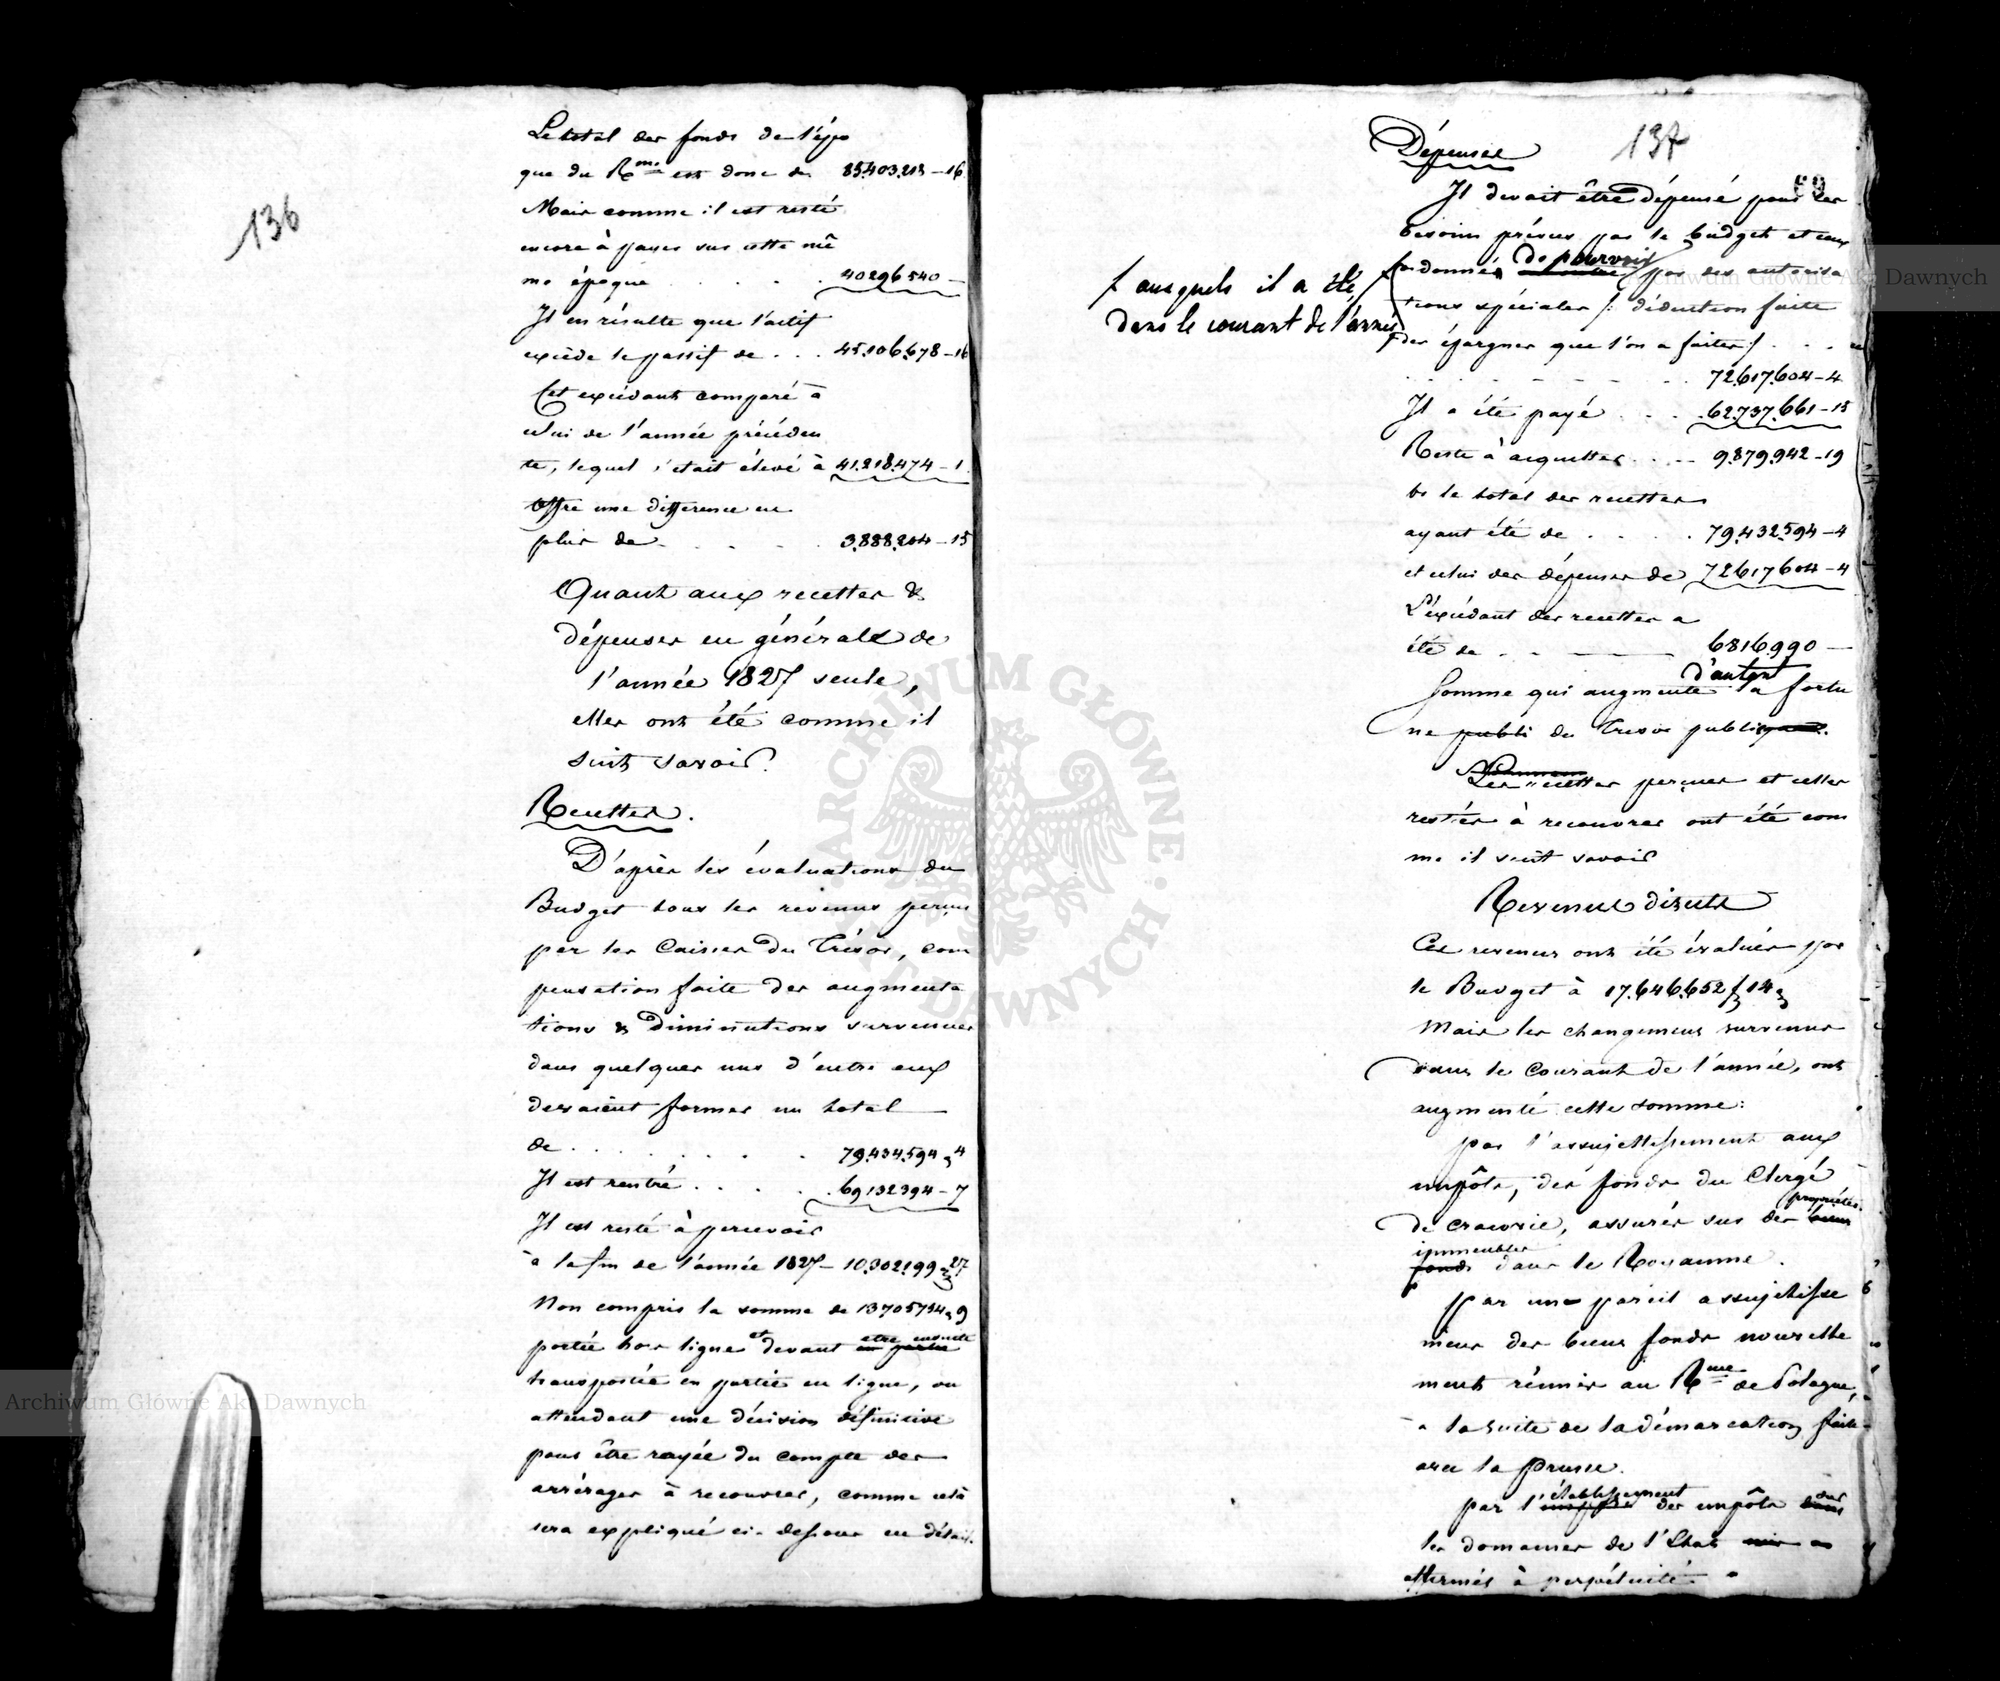 136
Le total des fonds de l'épo
que du Rme est donc de 85.403.213-16
Mais comme il est resté
encore à payer sur cette mê
me époque . . . . . 40296540 —
Il en résulte que l'actif
excède le passif de . . . 45.106.678-16
Cet excédant comparé à
celui de l'année précéden
te, lequel s'était élevé à 41.218.474-1
offre une différence en
plus de . . . . . 3.888.204-15
Quant aux recettes &
dépenses en générale de
l'année 1827 seule,
elles ont été comme il
suit savoir.
Recettes.
D'après les évaluations du
Budget tous les revenus perçus
par les Caisses du Trésor, com
pensation faite des augmenta
tions & diminutions survenues
dans quelques uns d'entre eux
devaient former un total
de . . . . . . . 79.434.594 " 4
Il est rentré . . . . 69132394-7
Il est resté à percevoir
à la fin de l'année 1827 — 10.302.199 " 27
Non compris la somme de 13705734 " 9
portée hors ligne et devant en partie être ensuite
transportée en partie en ligne, ou
attendant une décision définitive
pour être rayée du compte des
arrérages à recouvrer, comme cela
sera expliqué ci-dessous en détail.
137
69
Dépenses
Il devait être dépensé pour les
besoins prévus par le budget et ceux
auxquels il a été
dans le courant de l'année
ordonnés de pourvoir par des autorisa
tions spéciales /: déduction faite
des épargnes que l'on a faites /. . . .
. . . . . . . 72.617.604-4
Il a été payé . . . 62.737.661-15
Reste à acquitter . . . 9.879.942-19
le total des recettes
ayant été de . . . . 79.432.594-4
et celui des dépenses de 72.617.604-4
L'excédant des recettes a
été de . . — — 6816.990 —
Somme qui augmente d'autant la fortu
ne publi du Trésor publique.
Les recettes perçues et celles
restées à recouvrer ont été com
me il suit savoir
Revenus directs
Ces revenus ont été évalués par
le Budget à 17.646.652 f 14 g
Mais les changemens survenus
dans le courant de l'année, ont
augmenté cette somme:
par l'assujettissement aux
impôts, des fonds du Clergé
de Cracovie, assurés sur des biens propriétés
fonds immeubles dans le Royaume.
par un pareil assujetisse
ment des biens fonds nouvelle
ment réunis au Rme de Pologne,
à la suite de la démarcation faite
avec la Prusse.
par l'établissement des impôts dans sur
les domaines de l'Etat
affermés à perpétuité